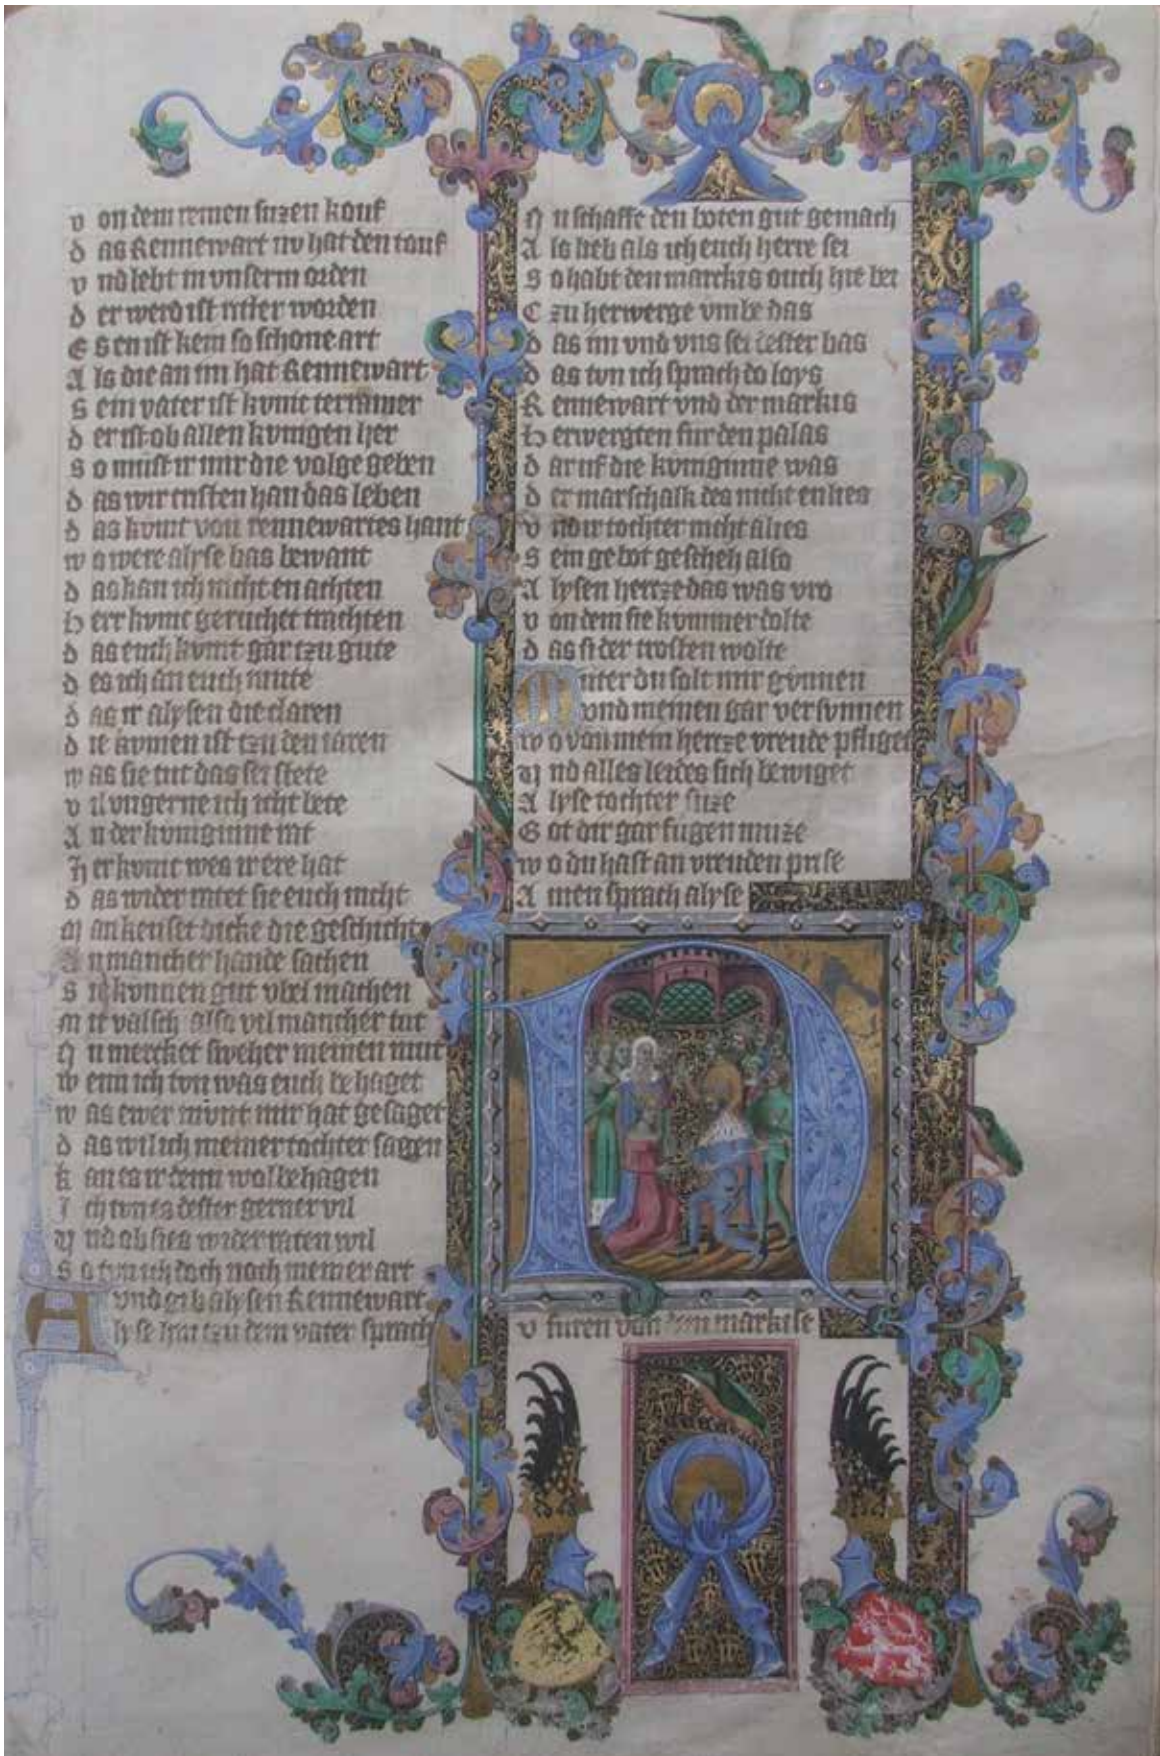 von dem reinen suzen kouf
das Rennewart nv hat den touf
vnd lebt in vnserm orden
der werd ist ritter worden
Es en ist kein so schone art
Als die an im hat Rennewart
sein vater ist kvnic terramer
der ist ob allen kvnigen her
so must ir mir die volge geben
das wir cristen han das leben
das kvmt von rennewartes hant
wo were alyse bas bewant
das kan ich nicht en achten
herr kvnic geruchet trachten
das euch kvmt gar tzu gute
des ich an euch mute
das ir alysen die claren
die kvmen ist tzu den iaren
was sie tut das sei stete
vil vngerne ich icht bete
An der kvniginne rat
Her kvnic wes ir ere hat
das wider ratet sie euch nicht
Man keuset dicke die geschicht
An mancher hande sachen
si kvnnen gut vbel machen
mit valsch also vil mancher tut
Nu mercket sweher meinen mut
wenn ich tvn was euch behaget
was ewer mvnt mir hat gesaget
das wil ich meiner tochter sagen
kan es ir denn wol behagen
Ich tvn es dester gerner vil
Vnd ob sies wider raten wil
so tvn ich doch noch meiner art
vnd gib alysen Rennewart
Alyse hat tzu dem vater sprach
Nu schaffe den boten gut gemach
Als lieb als ich euch herre sei
So habt den markis ouch hie bei
Czu herwerge vmbe das
das im vnd vns sei dester bas
das tvn ich sprach do loys
Rennewart vnd der markis
herwergten fur den palas
dar uf die kvniginne was
der marschalk des nicht en lies
vnd ir tochter nicht alies
sein gebot gescheh also
Alysen hertze das was vro
von dem sie kvmmer dolte
das si der trosten wolte
Mvter du solt mir gvnnen
vnd meinen gar versvnnen
wo von mein hertze vreude pfliget
vnd alles leides sich bewiget
Alyse tochter suze
Got dir gar fugen muze
wo du hast an vreuden prise
Amen sprach alyse
N
v furen von dem markise